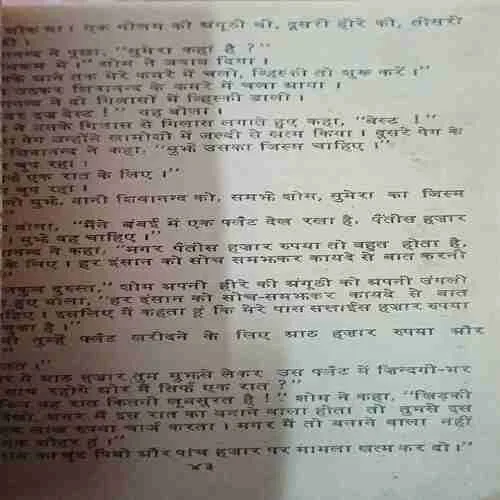 शौक था। एक नीलम की अंगूठी थी, दूसरी हीरे की, तीसरी
थी।
ने पूछा, "सुमेरा कहां है ?"
में।" शोम ने जवाब दिया।
के आने तक मेरे कमरे में चलो, व्हिस्की तो शुरू करें।"
उठकर शिवानन्द के कमरे में चला आया।
ने दो गिलासों में व्हिस्की डाली।
बेस्ट !" वह बोला।
ने उसके गिलास से गिलास लगाते हुए कहा, "बेस्ट !"
पेग उन्होंने खामोशी में जल्दी से खत्म किया। दूसरे पेग के
शिवानन्द ने कहा, "मुझे उसका जिस्म चाहिए।"
चुप रहा।
एक रात के लिए।"
चुप रहा।
मुझे, यानी शिवानन्द को, समझे शोम, सुमेरा का जिस्म
बोला, "मैंने बंबई में एक फ्लैट देख रखा है, पैंतीस हजार
मुझे वह चाहिए।"
ने कहा, "मगर पैंतीस हजार रुपया तो बहुत होता है,
के लिए। हर इंसान को सोच समझकर कायदे से बात करनी
दुरुस्त," शोम अपनी हीरे की अंगूठी को अपनी उंगली
हुए बोला, "हर इंसान को सोच-समझकर कायदे से बात
इसलिए मैं कहता हूं कि मेरे पास सत्ताईस हजार रुपया
चुका है।"
तुम्हें फ्लैट खरीदने के लिए आठ हजार रुपया और
आठ हजार तुम मुझसे लेकर उस फ्लैट में ज़िन्दगी-भर
साथ रहोगे और मैं सिर्फ एक रात ?"
यह रात कितनी खूबसूरत है !" शोम ने कहा, "खिड़की
अगर मैं इस रात का बनाने वाला होता तो तुमसे इस
लाख रुपया चार्ज करता। मगर मैं तो बनाने वाला नहीं
शौहर हूं।"
का घूंट पियो और पांच हजार पर मामला खत्म कर दो।"
४३